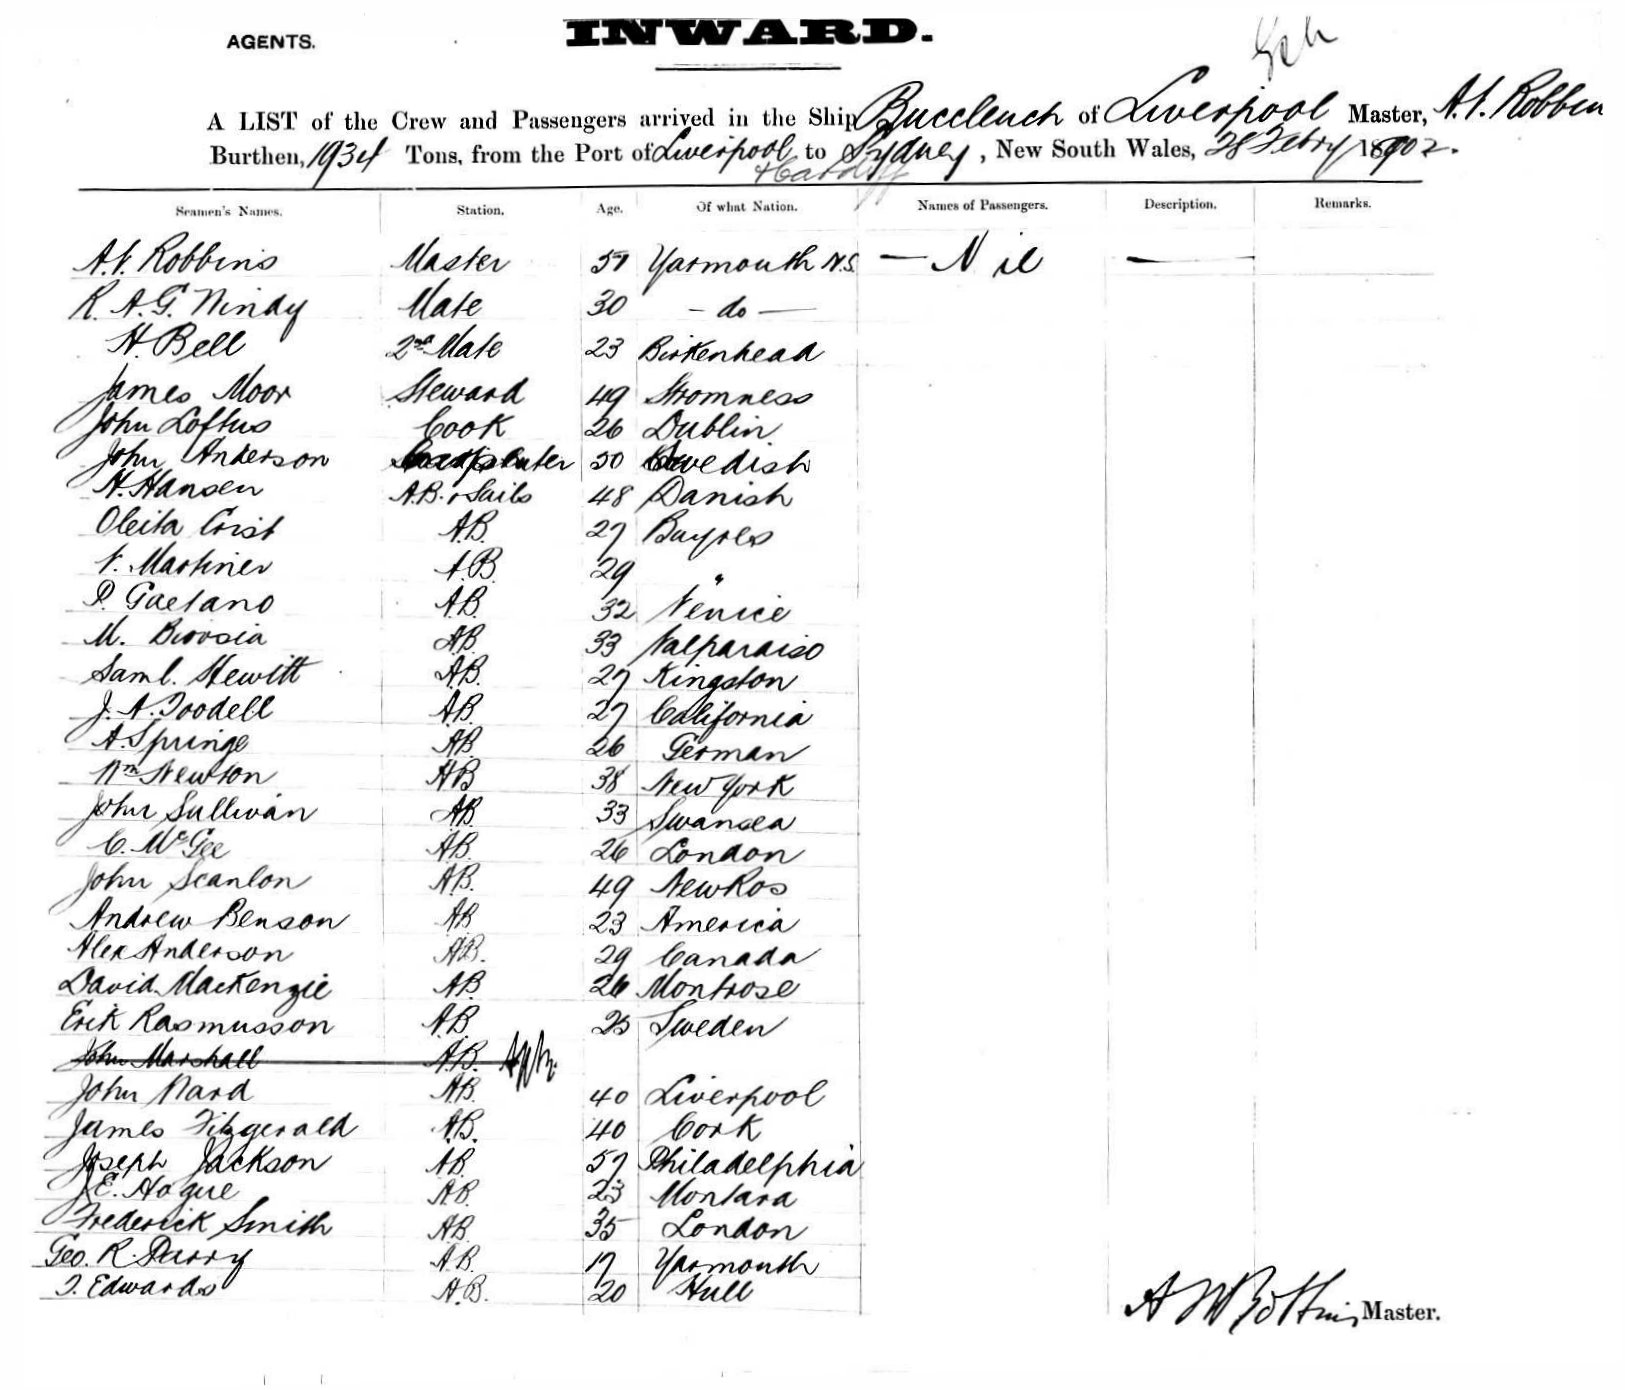 AGENTS.
INWARD.
A LIST of the Crew and Passengers arrived in the Ship Buccleuch of Liverpool Master, A. Robbin
Burthen, 1934 Tons, from the Port of Liverpool to Sydney, New South Wales, 28 Febry 1902.
Seamen's Names. Station. Age. Of what Nation. Names of Passengers. Description. Remarks.
Robbins Master Yarmouth N.S. — Nil —
R. A. G. Mate 30 — do —
H. Bell 2nd Mate 23 Birkenhead
James Moor Steward 49 Stromness
John Loftus Cook 26 Dublin
John Anderson Carpenter 50 Swedish
H. Hansen A.B. & Sails 48 Danish
Oleita Crist A.B. 27 Bayres
Martiner A.B. 29 "
P. Gaetano A.B. 32 Venice
M. A.B. 33 Valparaiso
Saml. Hewitt A.B. 27 Kingston
J. A. Toodell A.B. 27 California
A. Springe A.B. 26 German
Wm Newton AB 38 New York
John Sullivan AB. 33 Swansea
C. McGee AB. 26 London
John Scanlon A.B. 49 New Ros
Andrew Benson AB 23 America
Alex Anderson AB. 29 Canada
David Mackenzie AB 26 Montrose
Erik Rasmusson A.B. 25 Sweden
John Marshall A.B.
John Ward AB. 40 Liverpool
James Fitzgerald A.B. 40 Cork
Joseph Jackson AB. 57 Philadelphia
J. E. Hogue A.B. 23 Montara
Frederick Smith AB. 35 London
Geo. R. Parry A.B. 17 Yarmouth
T. Edwards A.B. 20 Hull
Master.